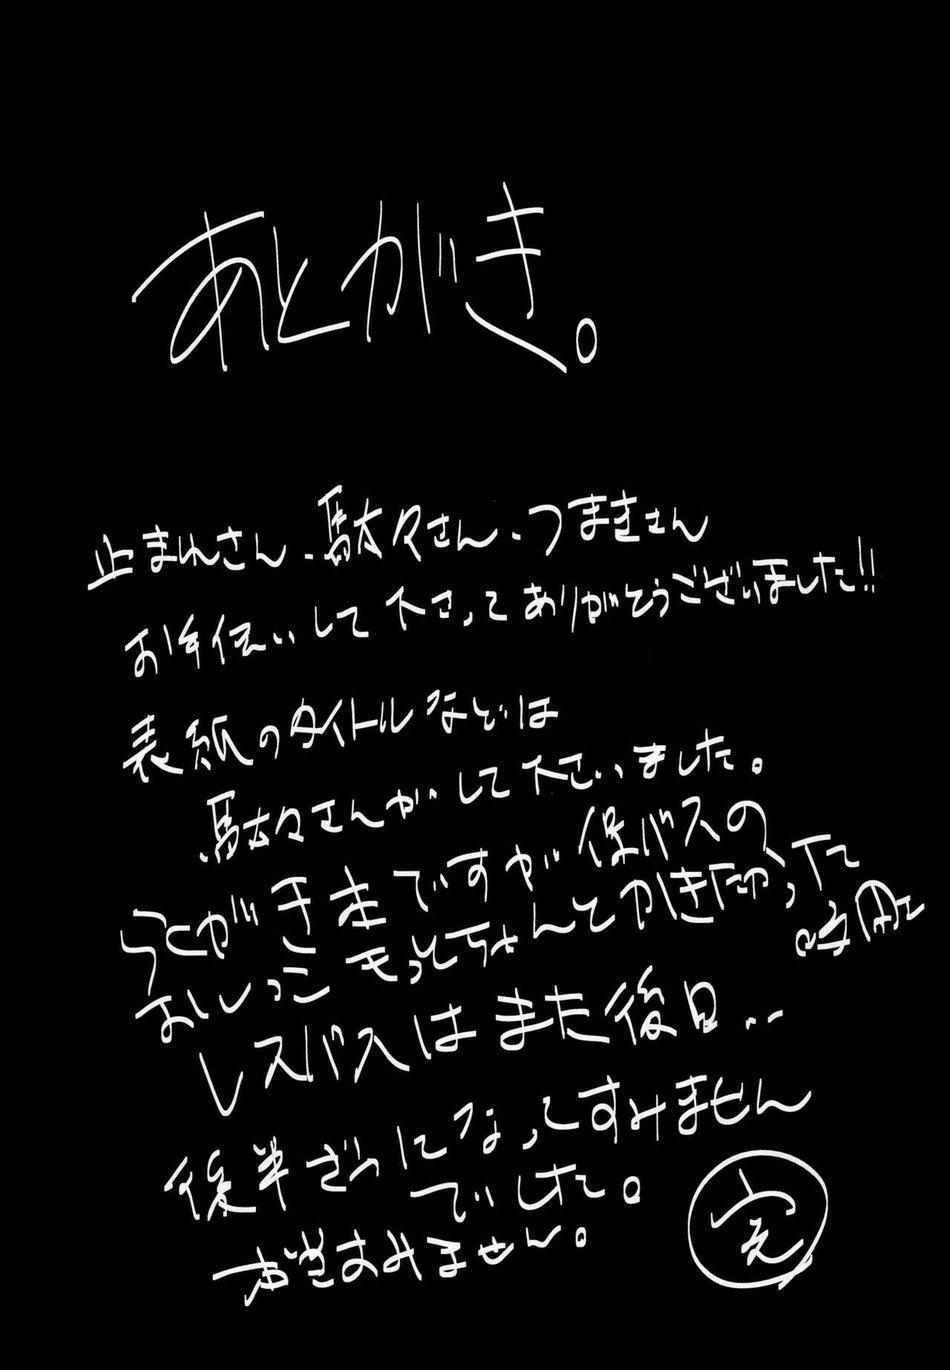 あとがき。
止まれさん、駄々さん、つまきさん
お手伝いして下さってありがとうございました!!
表紙のタイトルなどは
駄々さんがして下さいました。
らくがきまですが保バスの
おしっこもっとちゃんとかきたかった
レズバスはまた後日..
後半ざつになってすみません
でした。
すみません。
完